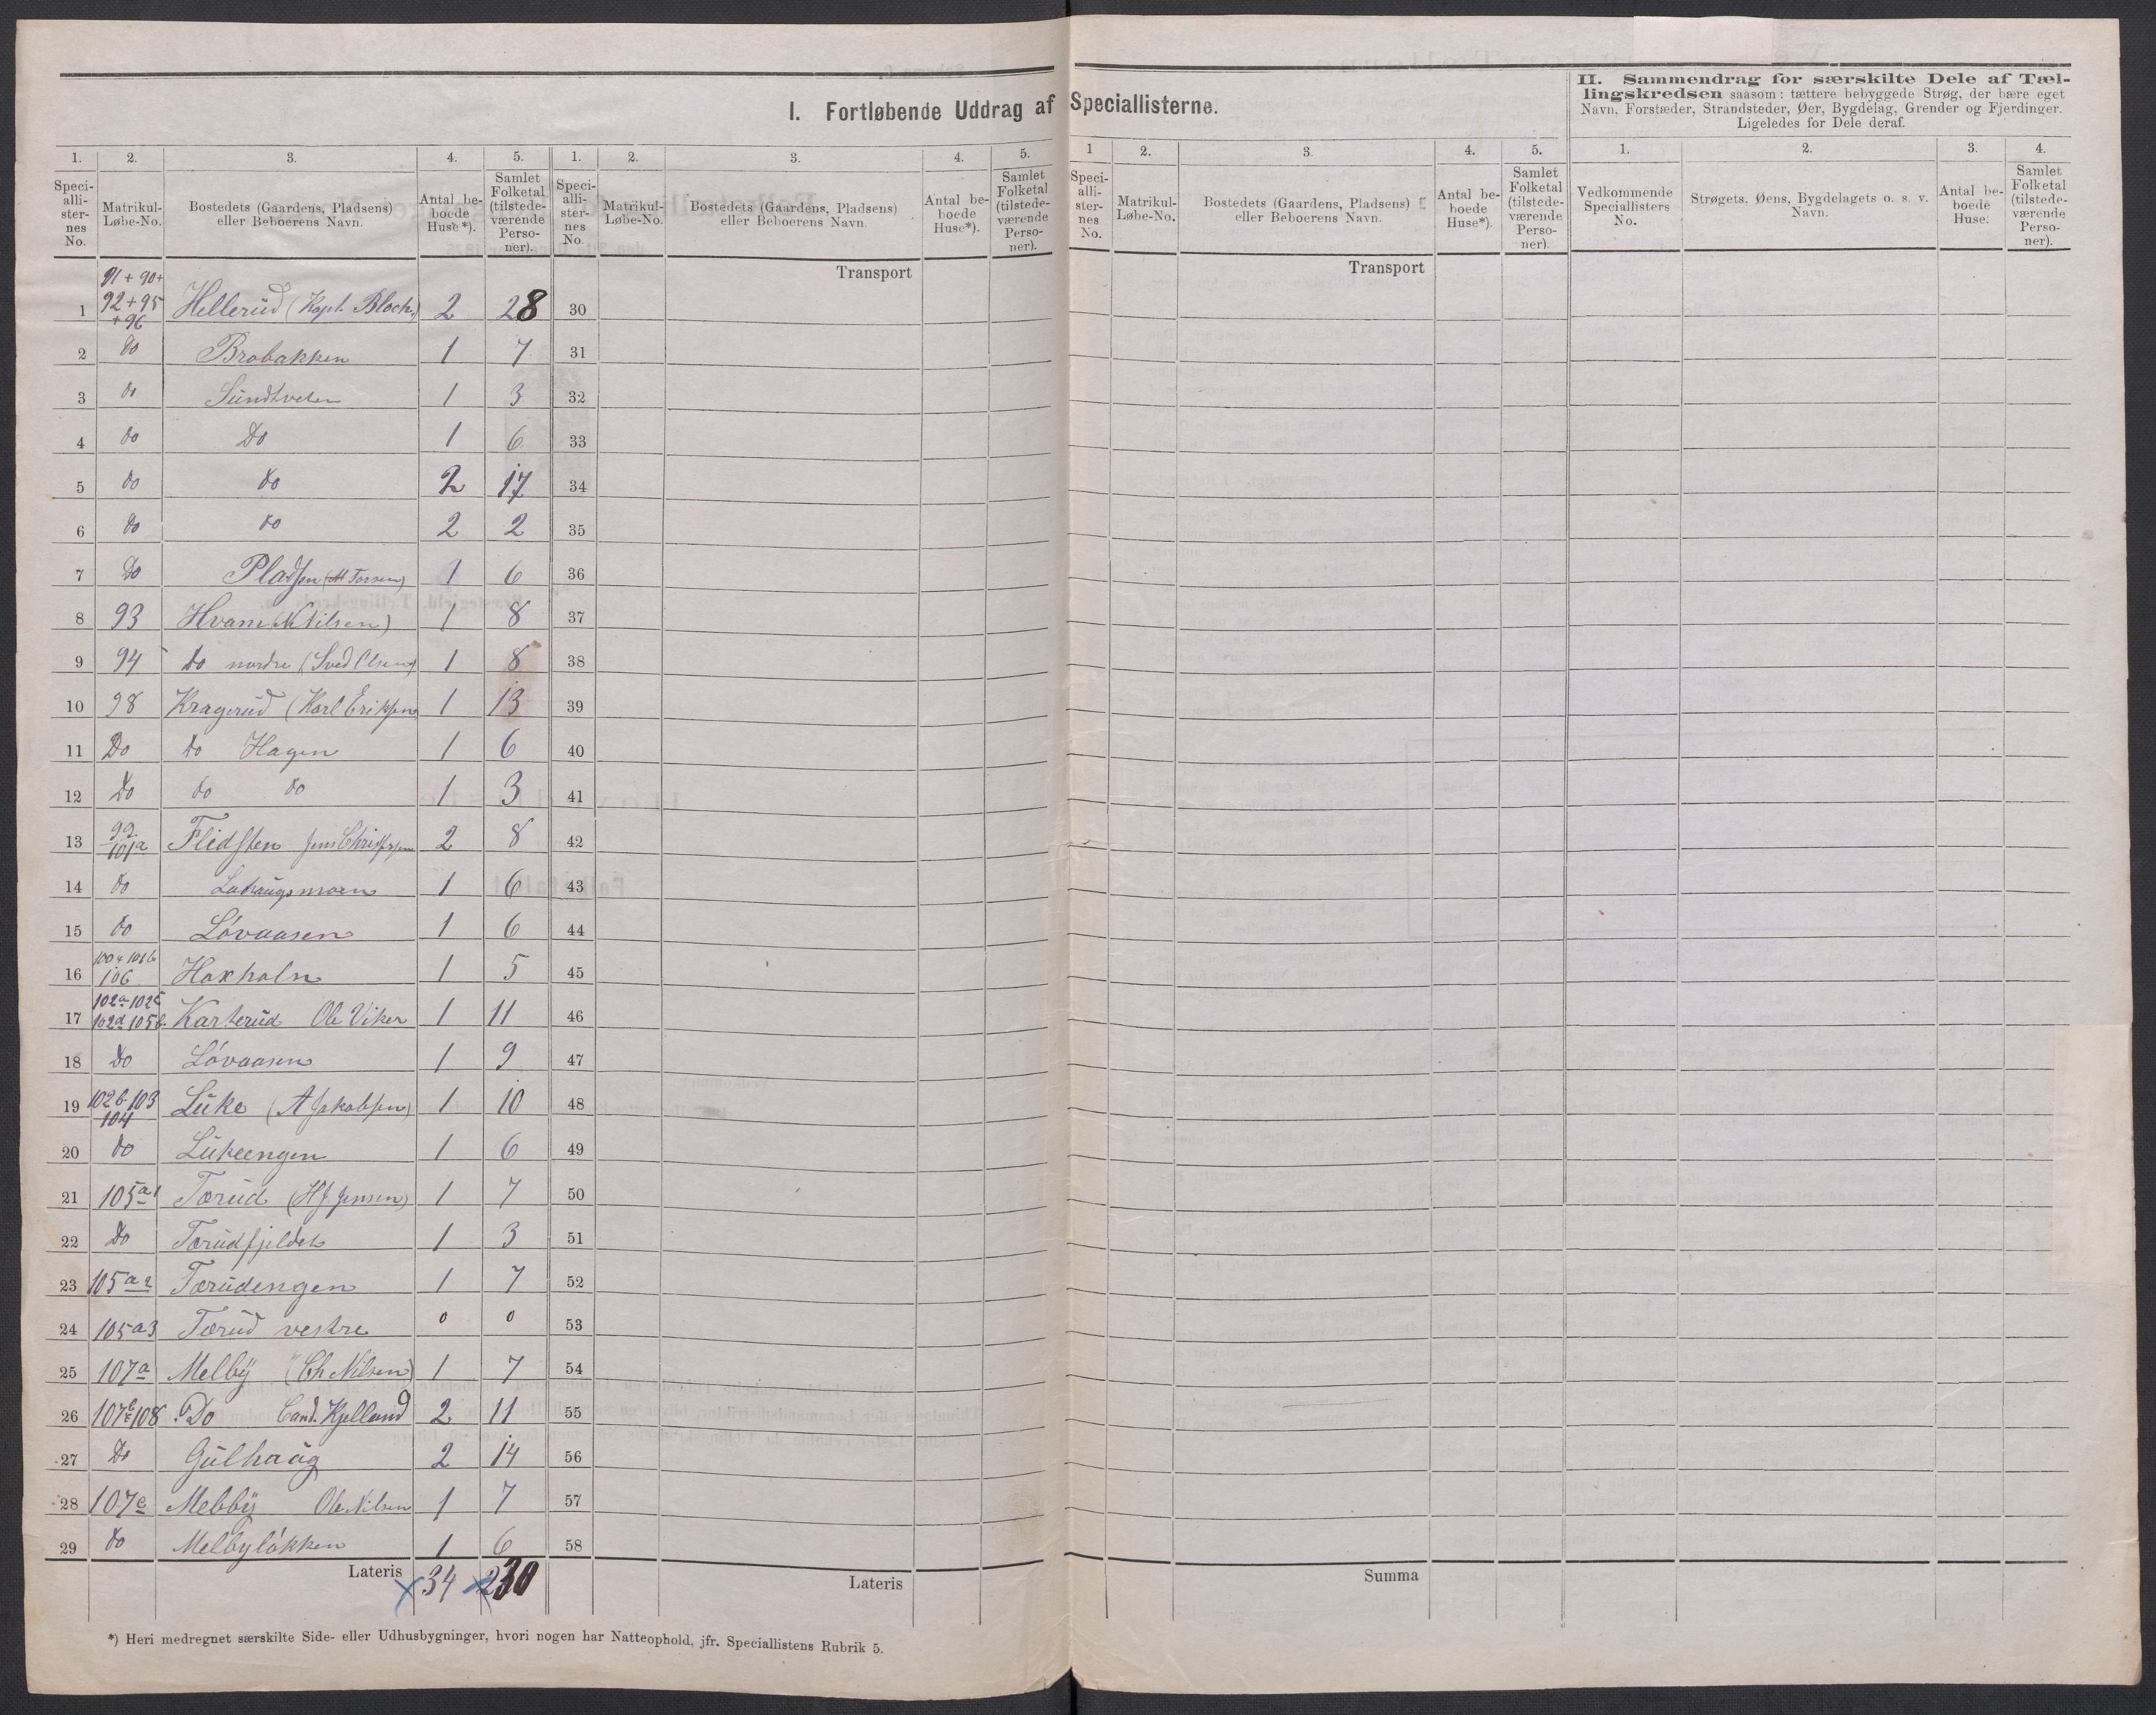 I. Fortløbende Uddrag af Speciallisterne.
II. Sammendrag for særskilte Dele af Tællingskredsen saasom: tættere bebyggede Strøg, der bære eget
Navn, Forstæder, Strandsteder, Øer, Bygdelag, Grender og Fjerdinger.
Ligeledes for Dele deraf.
1. 2. 3. 4. 5. 1. 2. 3. 4. 5. 1 2. 3. 4. 5. 1. 2. 3. 4.
Speciallisternes No. Matrikul-Løbe-No. Bostedets (Gaardens, Pladsens) eller Beboerens Navn. Antal beboede Huse*). Samlet Folketal (tilstedeværende Personer).
Speciallisternes No. Matrikul-Løbe-No. Bostedets (Gaardens, Pladsens) eller Beboerens Navn. Antal beboede Huse*). Samlet Folketal (tilstedeværende Personer).
Speciallisternes No. Matrikul-Løbe-No. Bostedets (Gaardens, Pladsens) eller Beboerens Navn. Antal beboede Huse*). Samlet Folketal (tilstedeværende Personer).
Vedkommende Speciallisters No. Strøgets, Øens, Bygdelagets o. s. v. Navn. Antal beboede Huse. Samlet Folketal (tilstedeværende Personer).
Transport Transport
1 91 + 90 + 92 + 95 + 96 Hellerud (Kapt. Bloch) 2 28 30
2 do Brobakken 1 7 31
3 do Sundtveten 1 3 32
4 do Do 1 6 33
5 do do 2 17 34
6 do do 2 2 35
7 Do Pladsen ( Torsen) 1 6 36
8 93 Hvam (N Nilsen) 1 8 37
9 94 do nordre ( Olsen) 1 8 38
10 98 Kragerud (Karl Eriksen 1 13 39
11 Do do Hagen 1 6 40
12 Do do do 1 3 41
13 99 101a Flidsten Jens Christophersen 2 8 42
14 do Lahaugsmoen 1 6 43
15 do Lövaasen 1 6 44
16 100 + 101b 106 Hoxholn 1 5 45
17 102a-102c 102d 105b Karterud Ole Viker 1 11 46
18 Do Lövaasen 1 9 47
19 102b-103 104 Luke (A Jakobsen) 1 10 48
20 do Lukeengen 1 6 49
21 105a1 Torud (H J Jensen) 1 7 50
22 Do Torudfjeldet 1 3 51
23 105a2 Torudengen 1 7 52
24 105a3 Torud vestre 0 0 53
25 107a Melby (Ch Nilsen) 1 7 54
26 107b 108 Do Cand. Kjelland 2 11 55
27 Do Gulhaug 2 14 56
28 107c Mebby Ole Nilsen 1 7 57
29 do Melbylökken 1 6 58
Lateris 34 230 Lateris Summa
*) Heri medregnet særskilte Side- eller Udhusbygninger, hvori nogen har Natteophold, jfr. Speciallistens Rubrik 5.